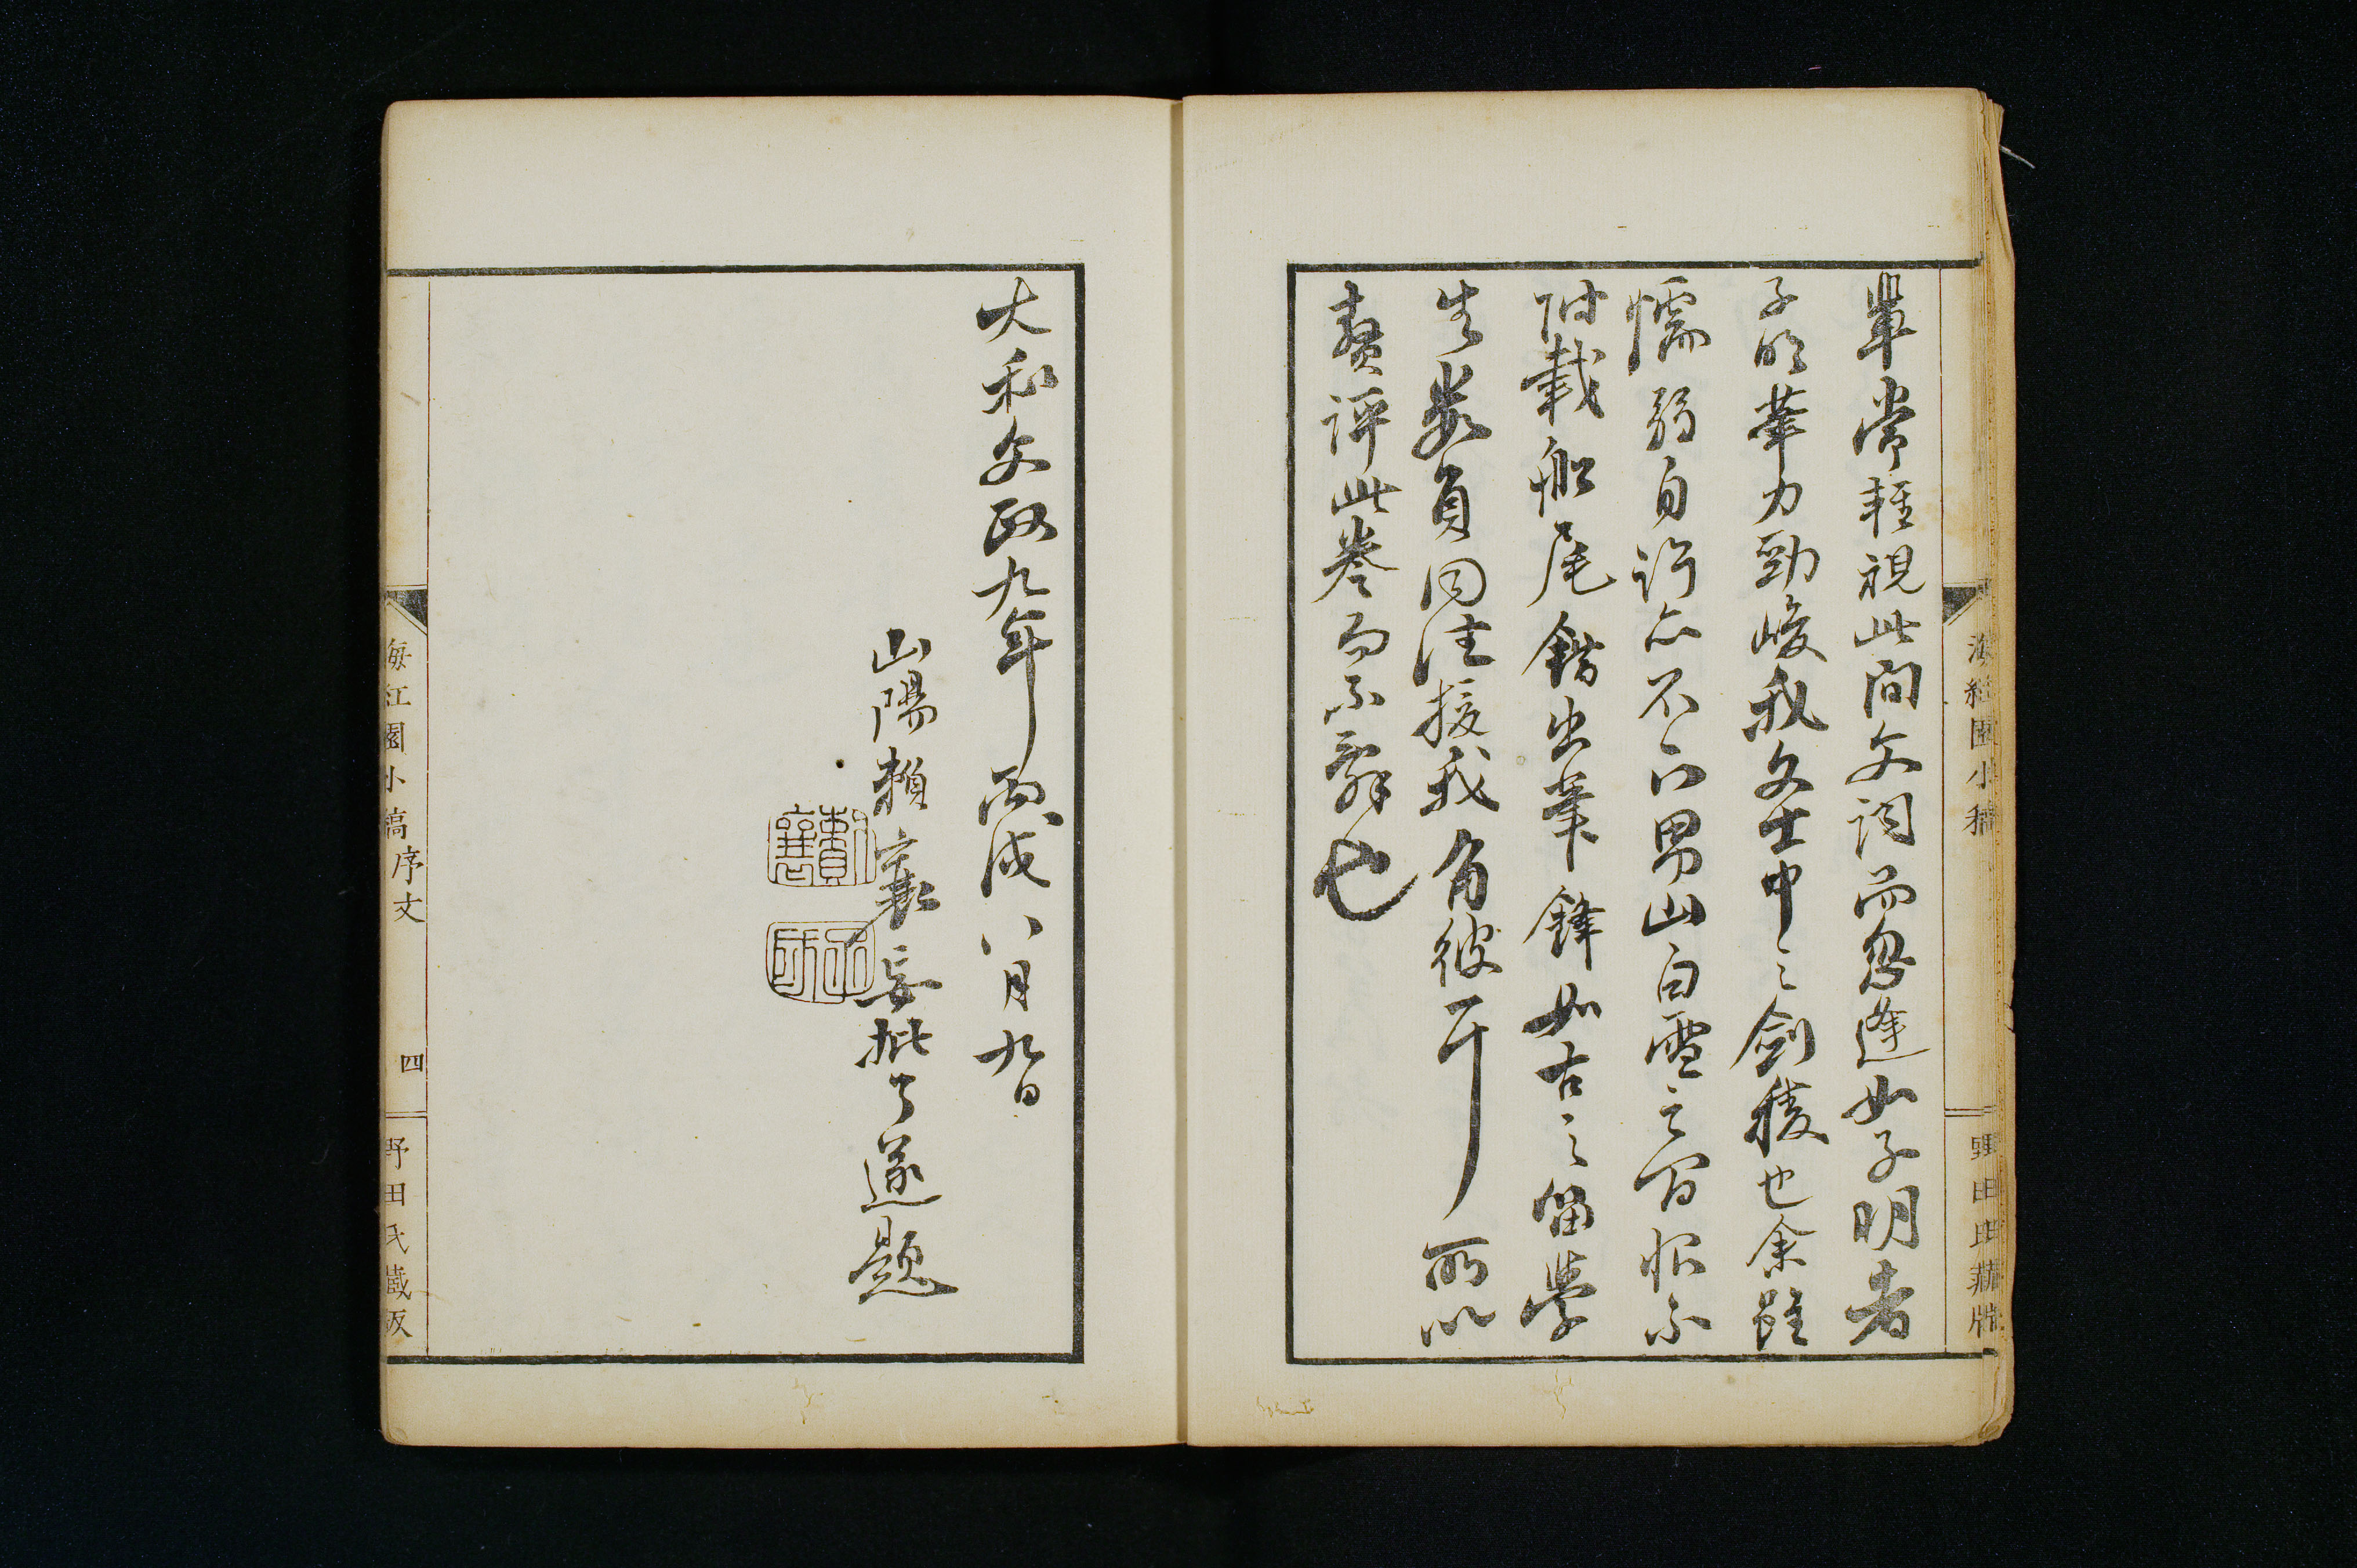 輩常輕視此間文詞而忽逢如子明者
子明筆力勁峻我文士中之劍稜也余雖
懦弱自許亦不下男山白雪之句恨不
附載船尾錯出筆鋒如古之留學
生數員同往援我角彼耳所以
贅評此卷而不辭也
海紅園小稿
野田氏藏版
大和文政九年丙戌八月九日
山陽賴襄妄批了遂題
賴襄
子成
海紅園小稿序文
四
野田氏藏版